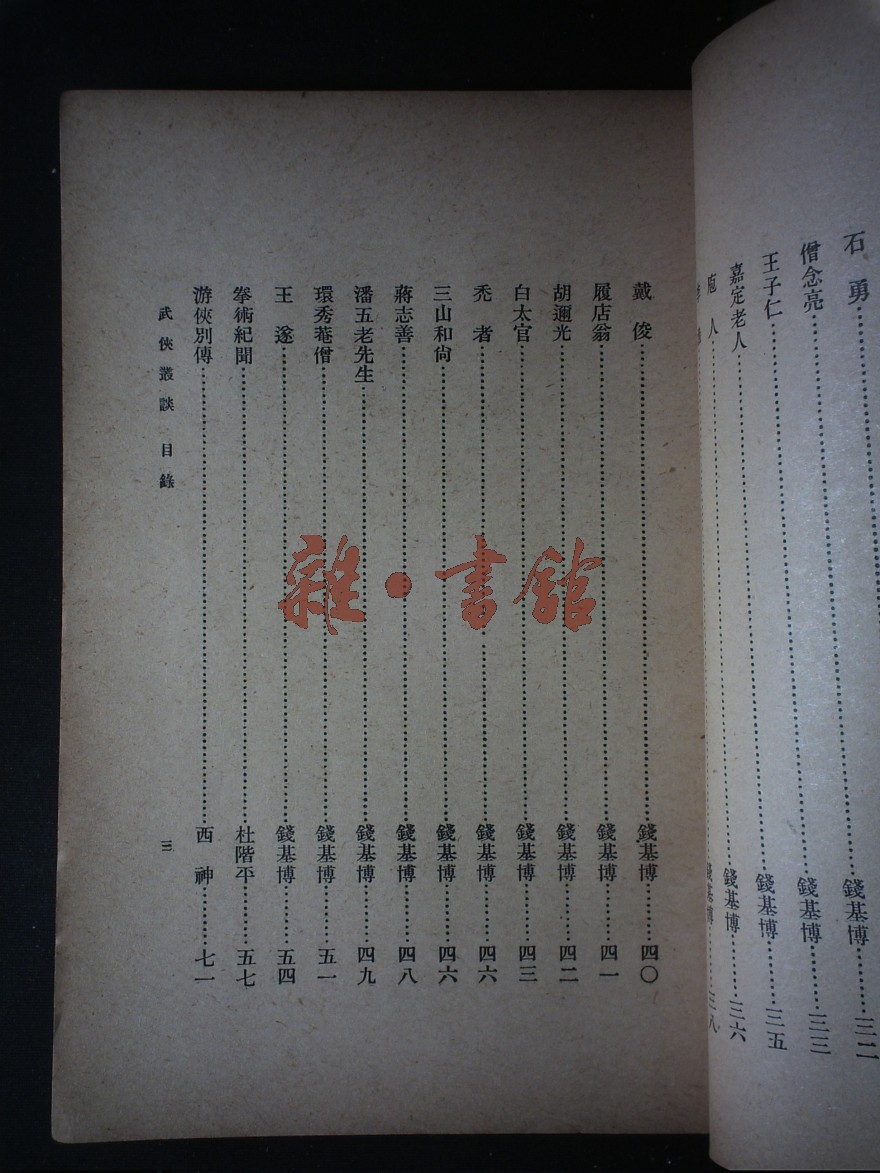 石勇……錢基博……三二
僧念亮……錢基博……三三
王子仁……錢基博……三五
嘉定老人……錢基博……三六
庖人……錢基博……三八
戴俊……錢基博……四〇
履店翁……錢基博……四一
胡邇光……錢基博……四二
白太官……錢基博……四三
禿者……錢基博……四六
三山和尙……錢基博……四六
蔣志善……錢基博……四八
潘五老先生……錢基博……四九
環秀菴僧……錢基博……五一
王遂……錢基博……五四
拳術紀聞……杜階平……五七
游俠別傳……西神……七一
武俠叢談 目錄 三
雜·書館